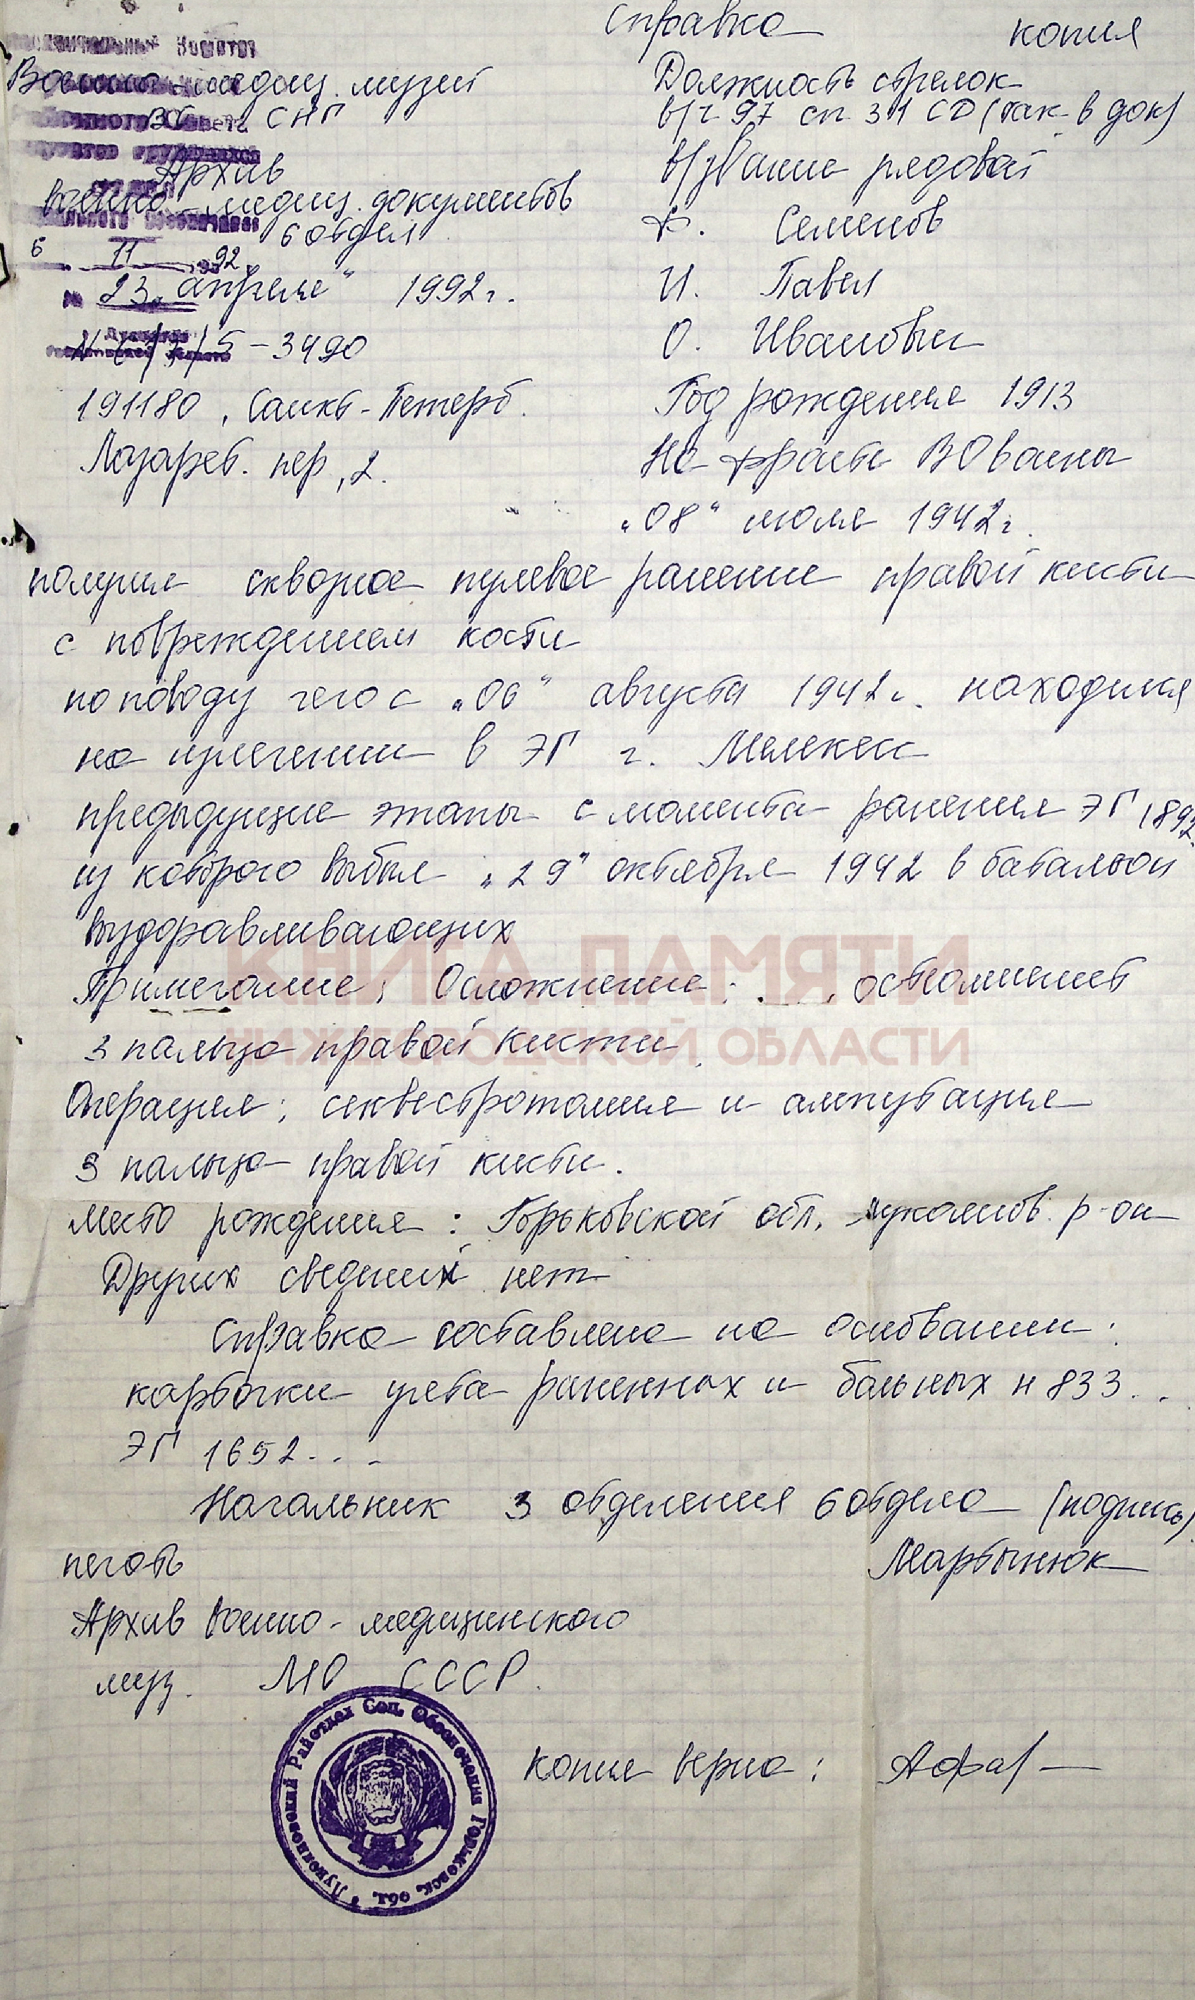 Справка копия
Исполнительный Комитет
Военно-медиц. музей
ВС СНГ
Архив
военно-медиц. документов
6 отдел
6 11 92
"23" апреля 1992 г.
N 6/3/5-3490
191180, Санкт-Петерб.
Лазарев. пер, 2.
Должность стрелок
в/ч 97 сп 31 СД (так в док)
в/звание рядовой
Ф. Семенов
И. Павел
О. Иванович
Год рождения 1913
На фронте ВОвойны
"08" июля 1942 г.
получил сквозное пулевое ранение правой кисти
с повреждением кости
по поводу чего с "06" августа 1942 г. находился
на излечении в ЭГ г. Мелекесс
предыдущие этапы с момента ранения ЭГ 1892
из которого выбыл "29" октября 1942 в батальон
выздоравливающих
Примечание; Осложнение: ... остеомиелит
3 пальца правой кисти.
КНИГА ПАМЯТИ
НИЖЕГОРОДСКОЙ ОБЛАСТИ
Операция; секвестротомия и ампутация
3 пальца правой кисти.
Место рождения: Горьковской обл. Лукоянов. р-он
Других сведений нет
Справка составлена на основании:
карточки учета раненных и больных н 833...
ЭГ 1652...
Начальник 3 отделения 6 отдела (подпись)
печать Мартынюк
Архив Военно-медицинского
муз. МО СССР.
Лукояновский Райотдел Соц. Обеспечения Горьковск. обл.
Копия верна: